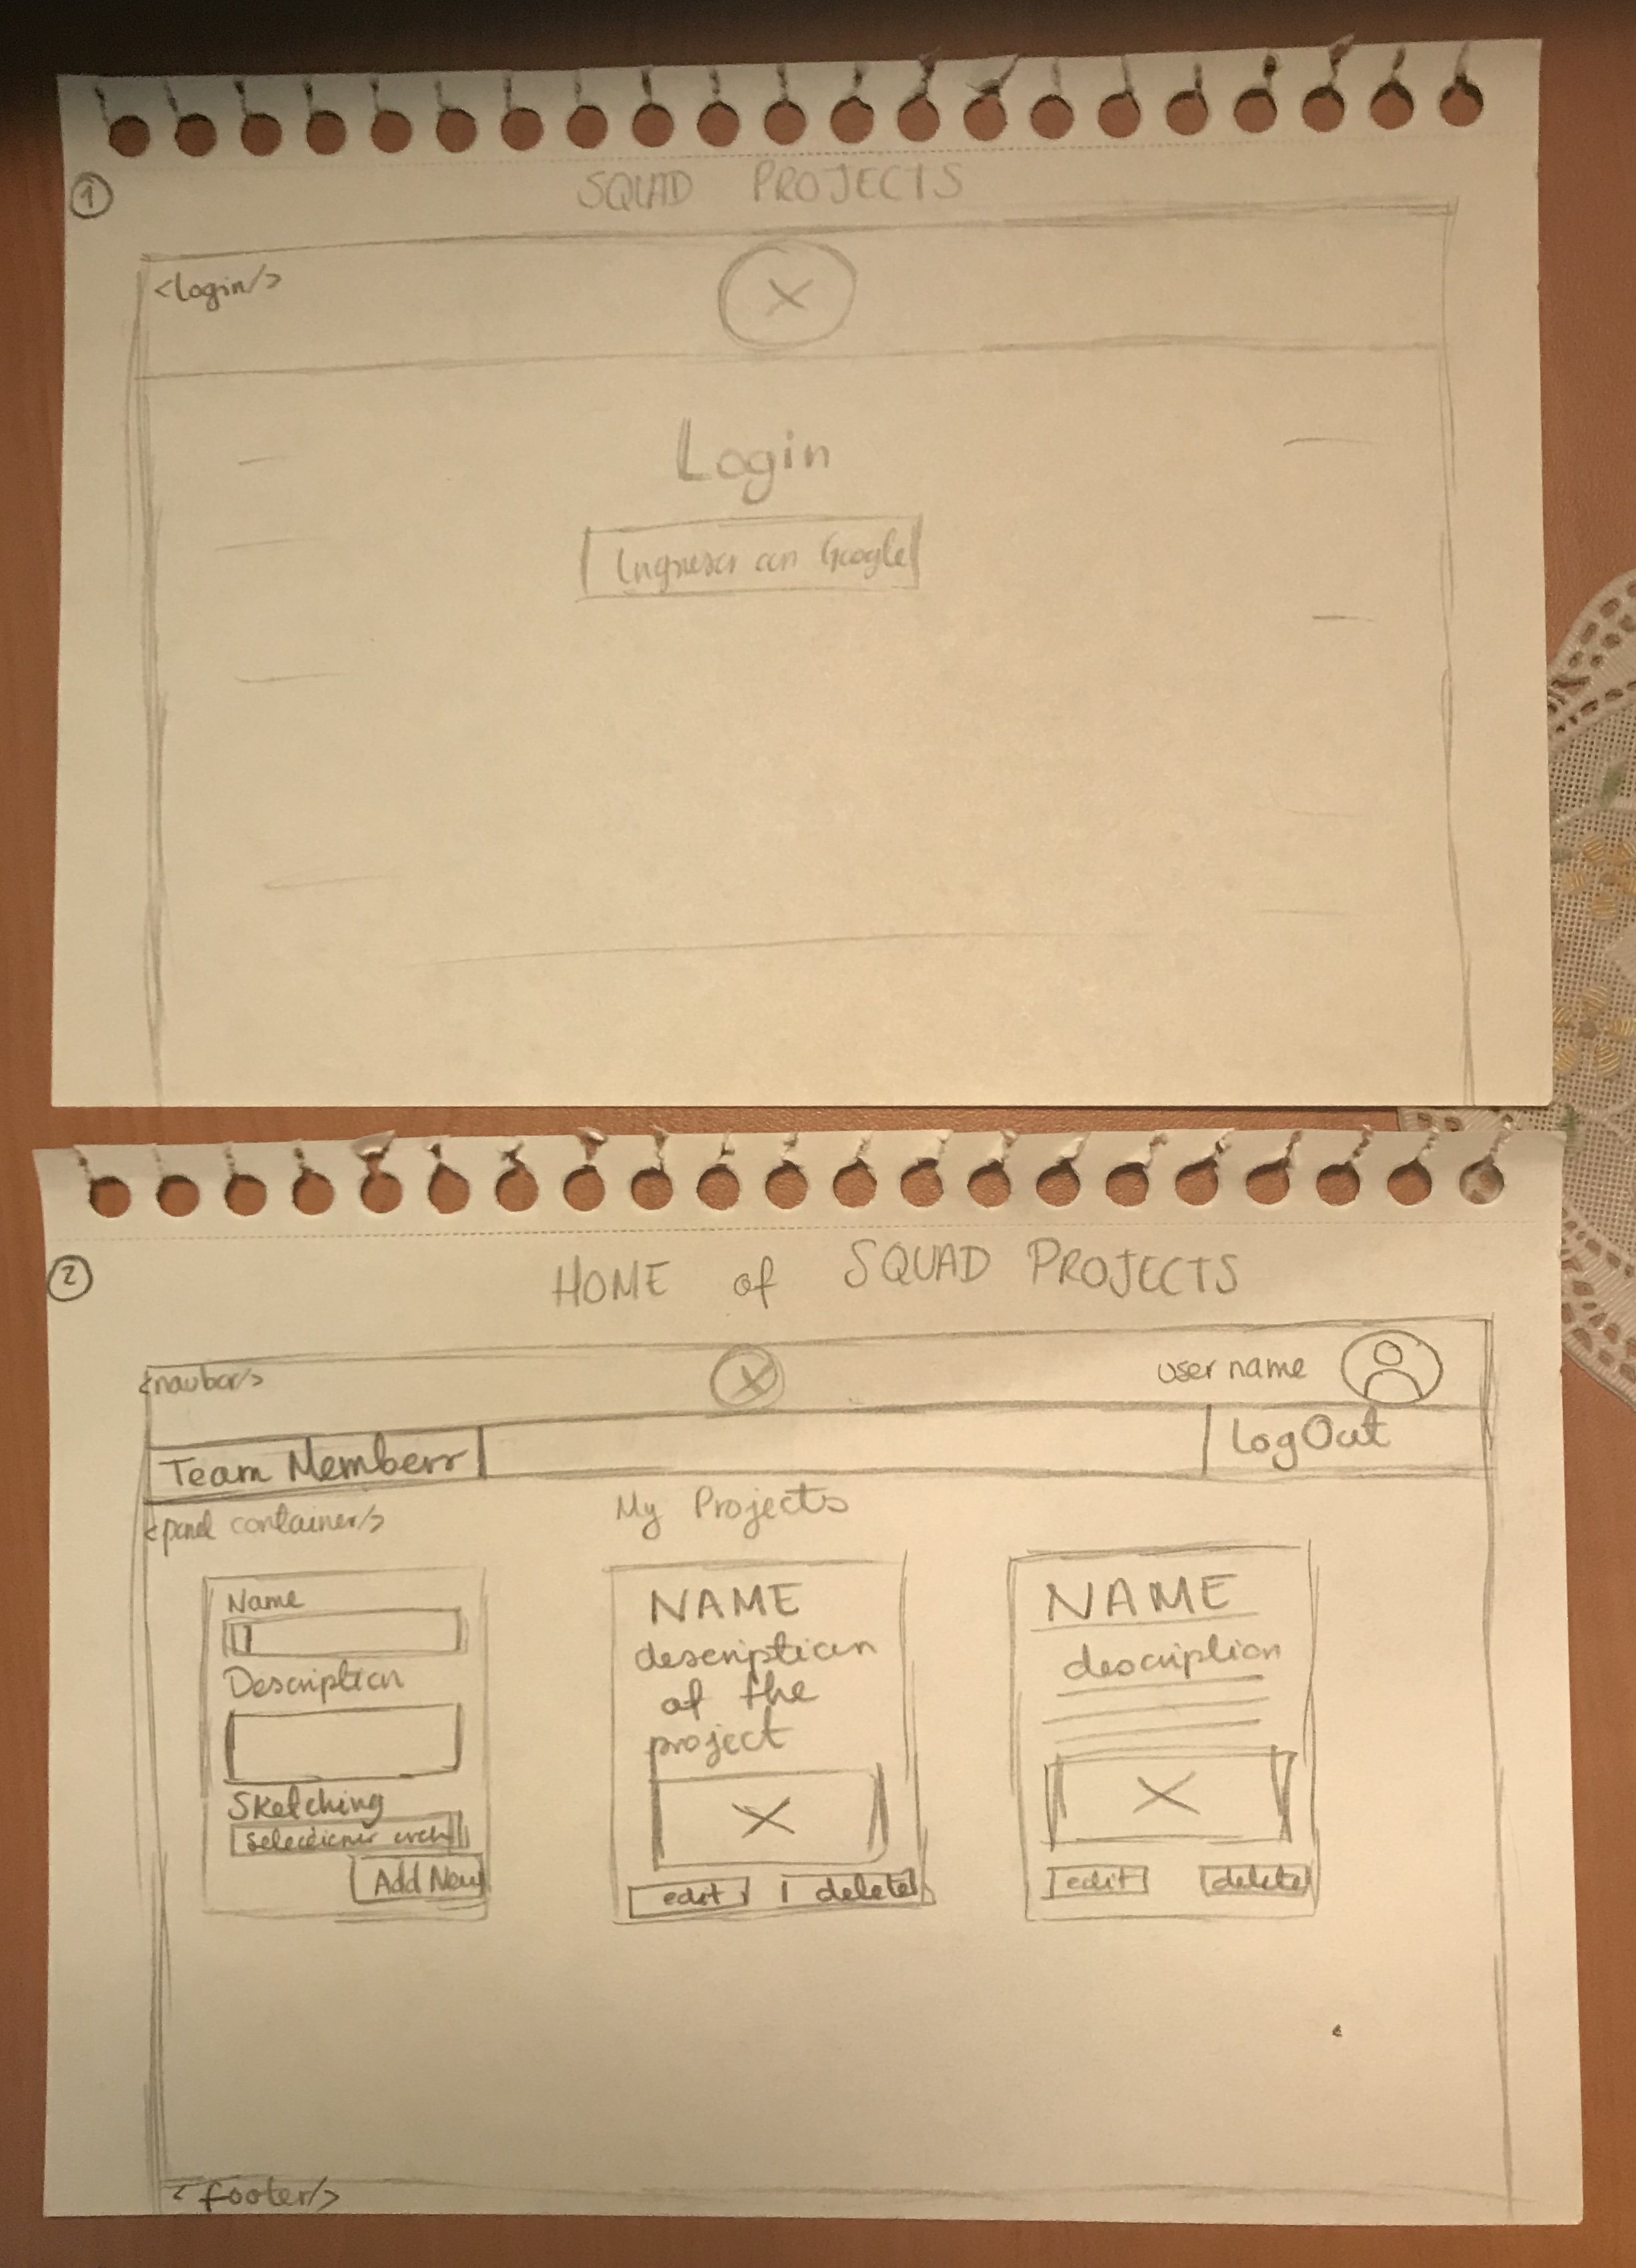 1
SQUAD PROJECTS
<login/>
Login
Ingresar con Google
2
HOME of SQUAD PROJECTS
<navbar/>
user name
Team Members
LogOut
<panel container/>
My Projects
Name
Description
Sketching
seleccionar arch
Add New
NAME
description
of the
project
edit
delete
NAME
description
edit
delete
<footer/>